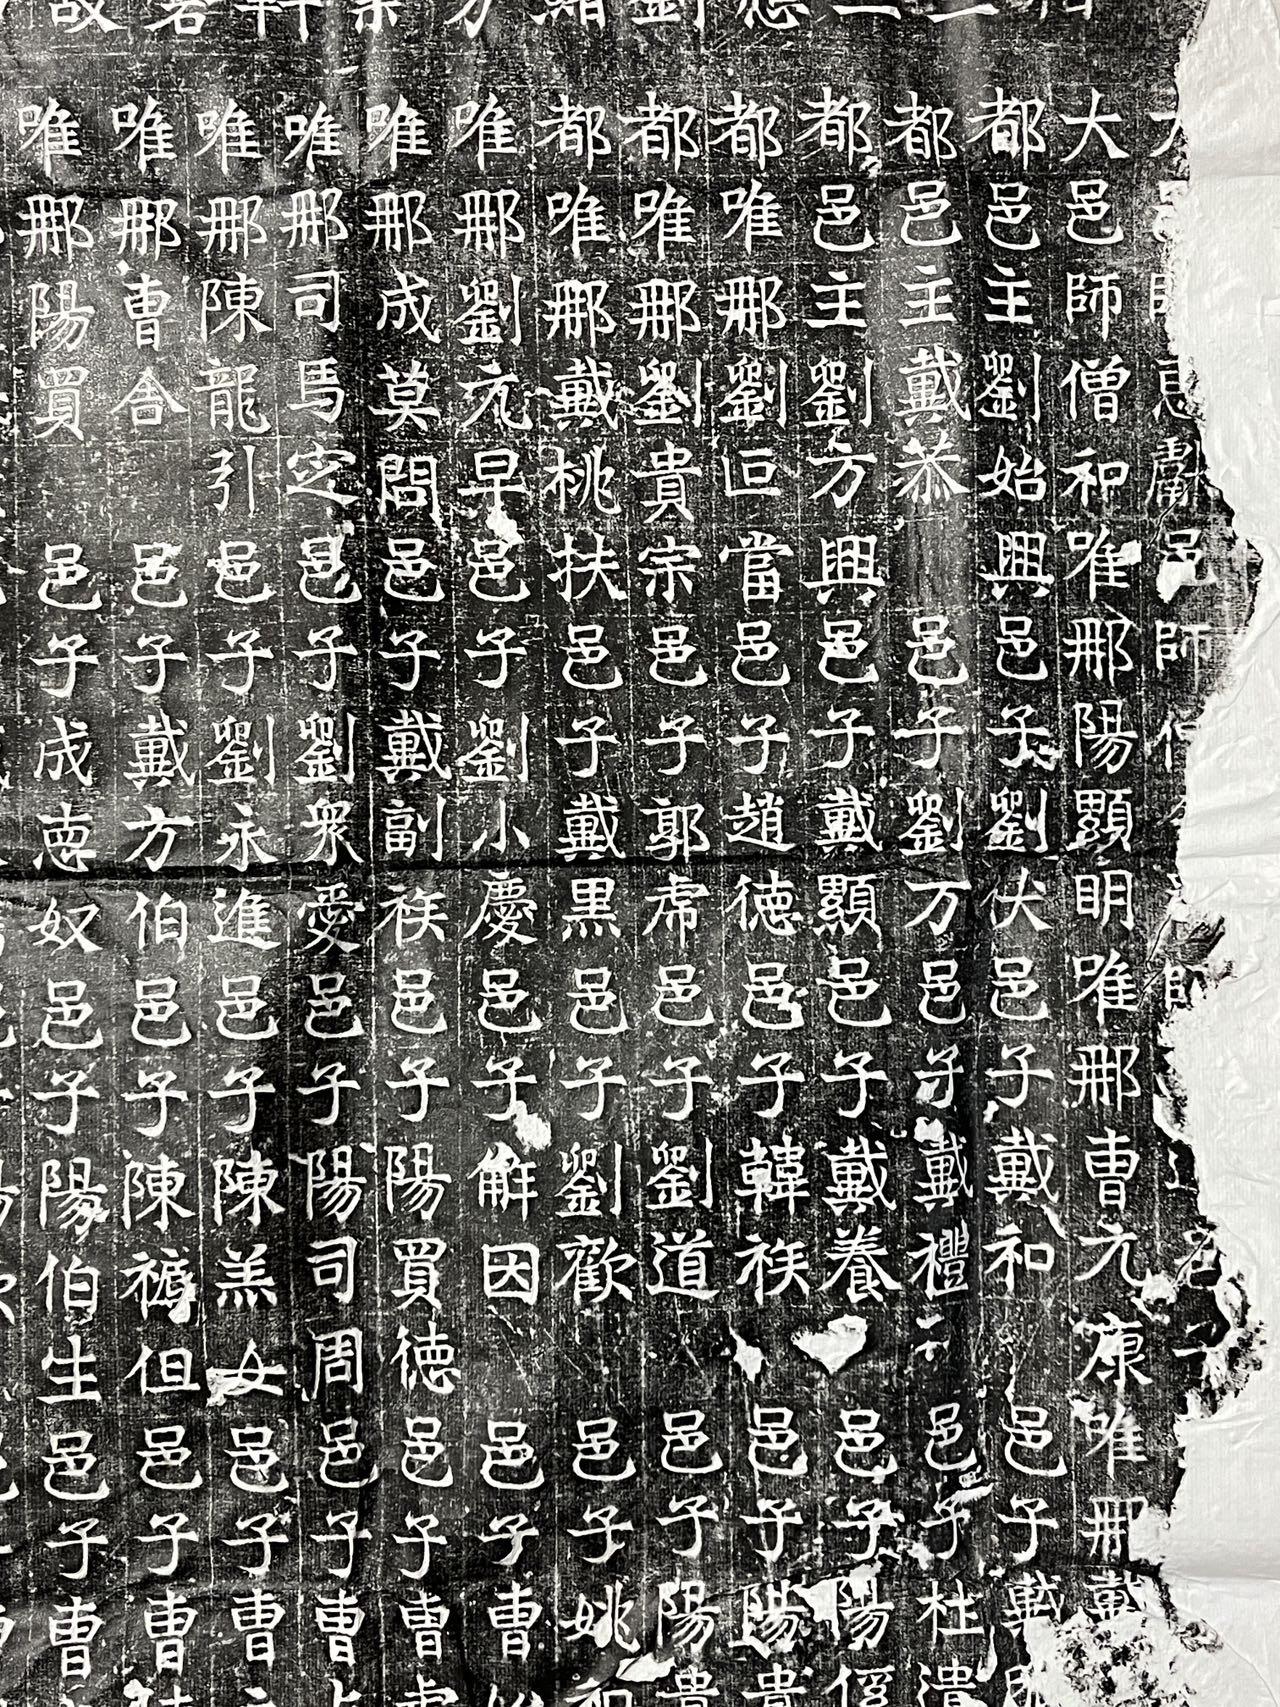 邑師惠獻邑師
大邑師僧和唯那陽顯明唯那曹元康唯那戴
都邑主劉始興邑子劉伏邑子戴和邑子戴
都邑主戴恭邑子劉万邑子戴禮邑子杜遺
都邑主劉方興邑子戴顯邑子戴養邑子陽
都唯那劉叵當邑子趙德邑子韓祑邑子陽貴
都唯那劉貴宗邑子郭席邑子劉道邑子陽貴
都唯那戴桃扶邑子戴黑邑子劉歡邑子姚和
唯那劉元早邑子劉小慶邑子解因邑子曹
唯那成莫問邑子戴副祑邑子陽買德邑子曹
唯那司馬定邑子劉眾愛邑子陽司周邑子曹
唯那陳龍引邑子劉永進邑子陳羔女邑子曹
唯那曹合邑子戴方伯邑子陳但邑子曹
唯那陽買邑子成惪奴邑子陽伯生邑子曹